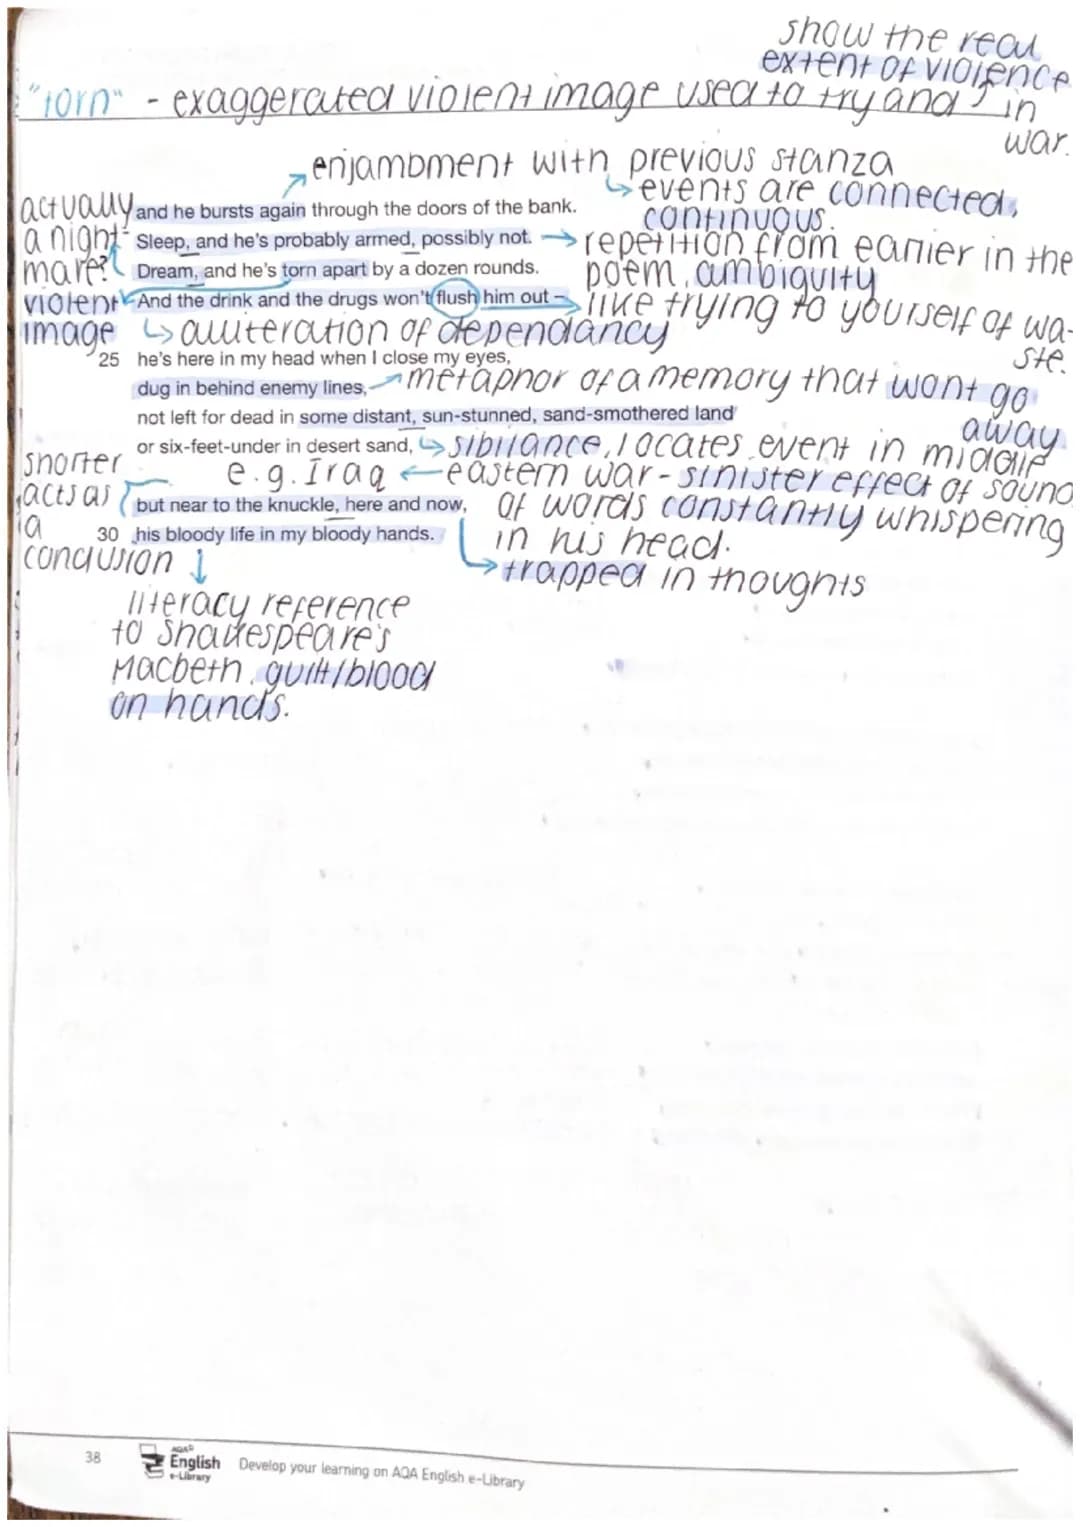 show the real
extent of violence
"torn" - exaggerated violent image used to try and in
war.
enjambment with previous stanza
events are connected,
continuous.
actually and he bursts again through the doors of the bank.
a night- Sleep, and he's probably armed, possibly not. → repetition from earlier in the
mare? Dream, and he's torn apart by a dozen rounds. poem. ambiguity
violent And the drink and the drugs won't flush him out – like trying to yourself of wa-
image alliteration of dependancy ste.
25 he's here in my head when I close my eyes,
dug in behind enemy lines, metaphor of a memory that wont go
away.
not left for dead in some distant, sun-stunned, sand-smothered land
or six-feet-under in desert sand, sibilance, locates event in middle
e.g. Iraq ← eastern war - sinister effect of sound
shorter
acts as but near to the knuckle, here and now, of words constantly whispering
a 30 his bloody life in my bloody hands. in his head.
conclusion trapped in thoughts
literacy reference
to Shakespeare's
Macbeth. guilt/blood
on hands.
38 AQA English e-Library Develop your learning on AQA English e-Library